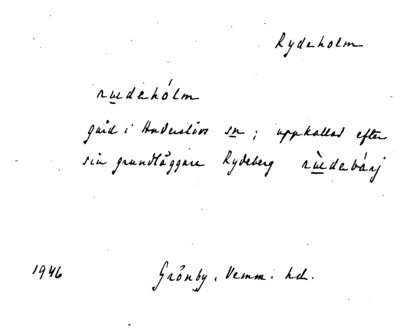 Rydeholm
rɯdehólm
gård i Anderslövs sn; uppkallad efter
sin grundläggare Rydeberg rɯ̀debárj
1946 Grönby, Vemm. hd.